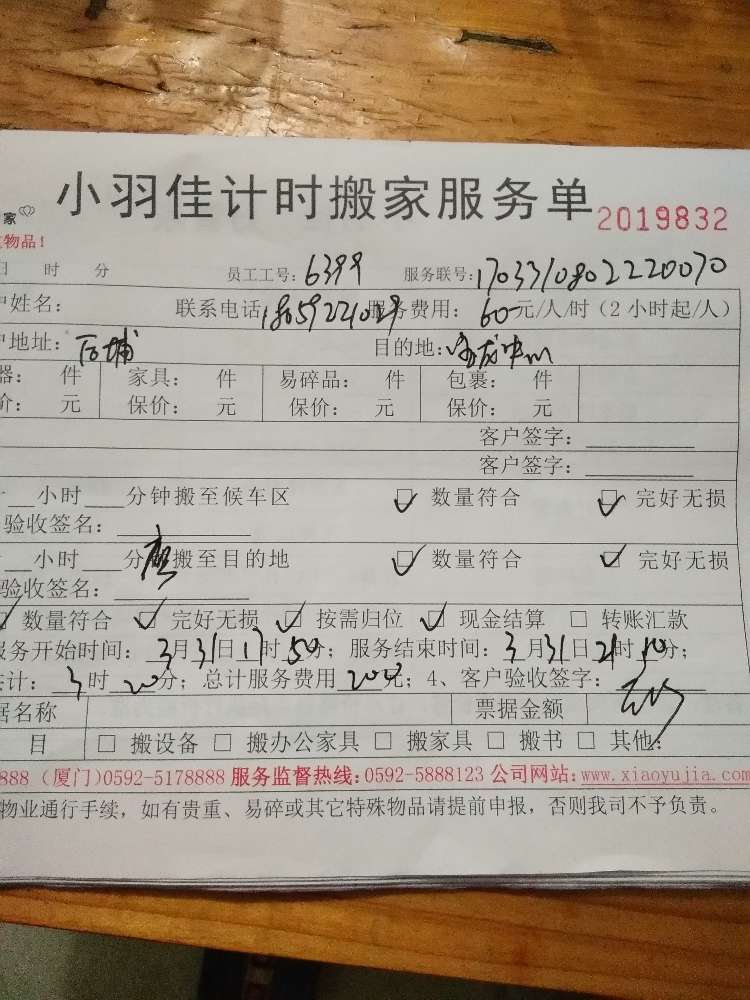 小羽佳计时搬家服务单 2019832
家
物品!
日 时 分 员工工号: 6399 服务联号: 1703310802220070
户姓名: 联系电话 18059221029 服务费用: 60元/人/时(2小时起/人)
户地址: 后埔 目的地:
器: 件 家具: 件 易碎品: 件 包裹: 件
价: 元 保价: 元 保价: 元 保价: 元
客户签字:
客户签字:
小时 分钟搬至候车区 ☑ 数量符合 ☑ 完好无损
验收签名:
小时 分 搬至目的地 ☑ 数量符合 ☑ 完好无损
验收签名:
☑ 数量符合 ☑ 完好无损 ☑ 按需归位 ☑ 现金结算 □ 转账汇款
服务开始时间: 3月31日17时50分; 服务结束时间: 3月31日21时10分;
共计: 3时20分; 总计服务费用 200元; 4、客户验收签字:
据名称 票据金额
目 □ 搬设备 □ 搬办公家具 □ 搬家具 □ 搬书 □ 其他:
888 (厦门)0592-5178888 服务监督热线:0592-5888123 公司网站:www.xiaoyujia.com
物业通行手续,如有贵重、易碎或其它特殊物品请提前申报,否则我司不予负责。